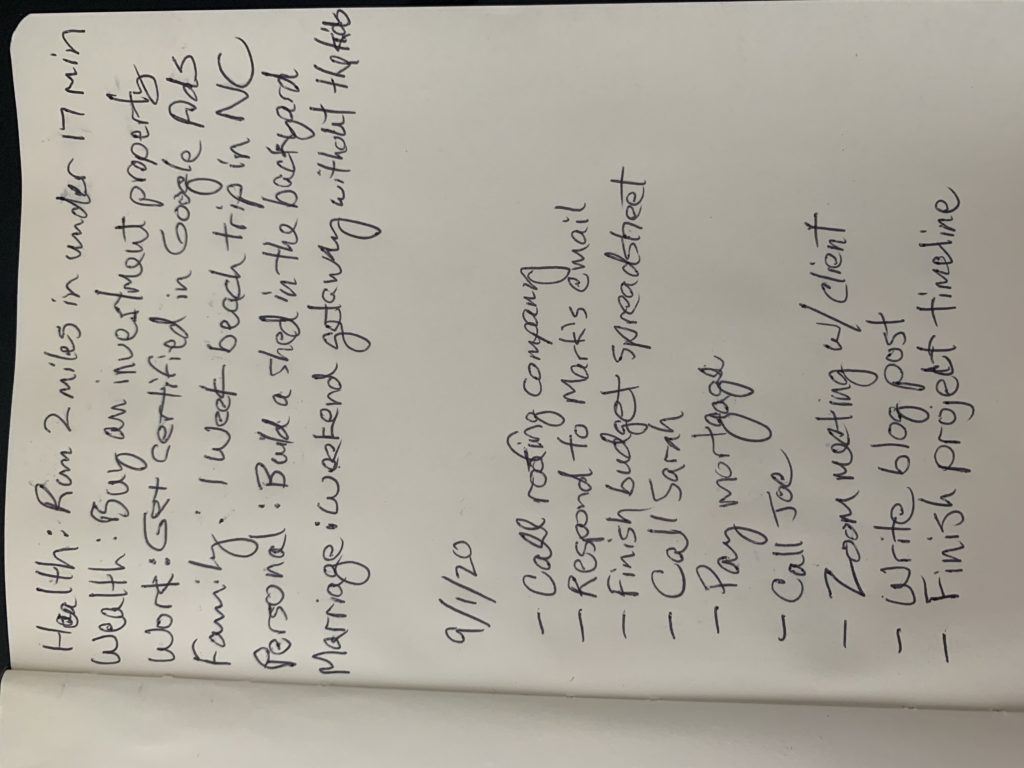 Health: Run 2 miles in under 17 min
Wealth: Buy an investment property
Work: Get certified in Google Ads
Family: 1 Week beach trip in NC
Personal: Build a shed in the backyard
Marriage: weekend getaway without the kids
9/1/20
- Call roofing company
- Respond to Mark's email
- Finish budget spreadsheet
- Call Sarah
- Pay mortgage
- Call Joe
- Zoom meeting w/ client
- Write blog post
- Finish project timeline